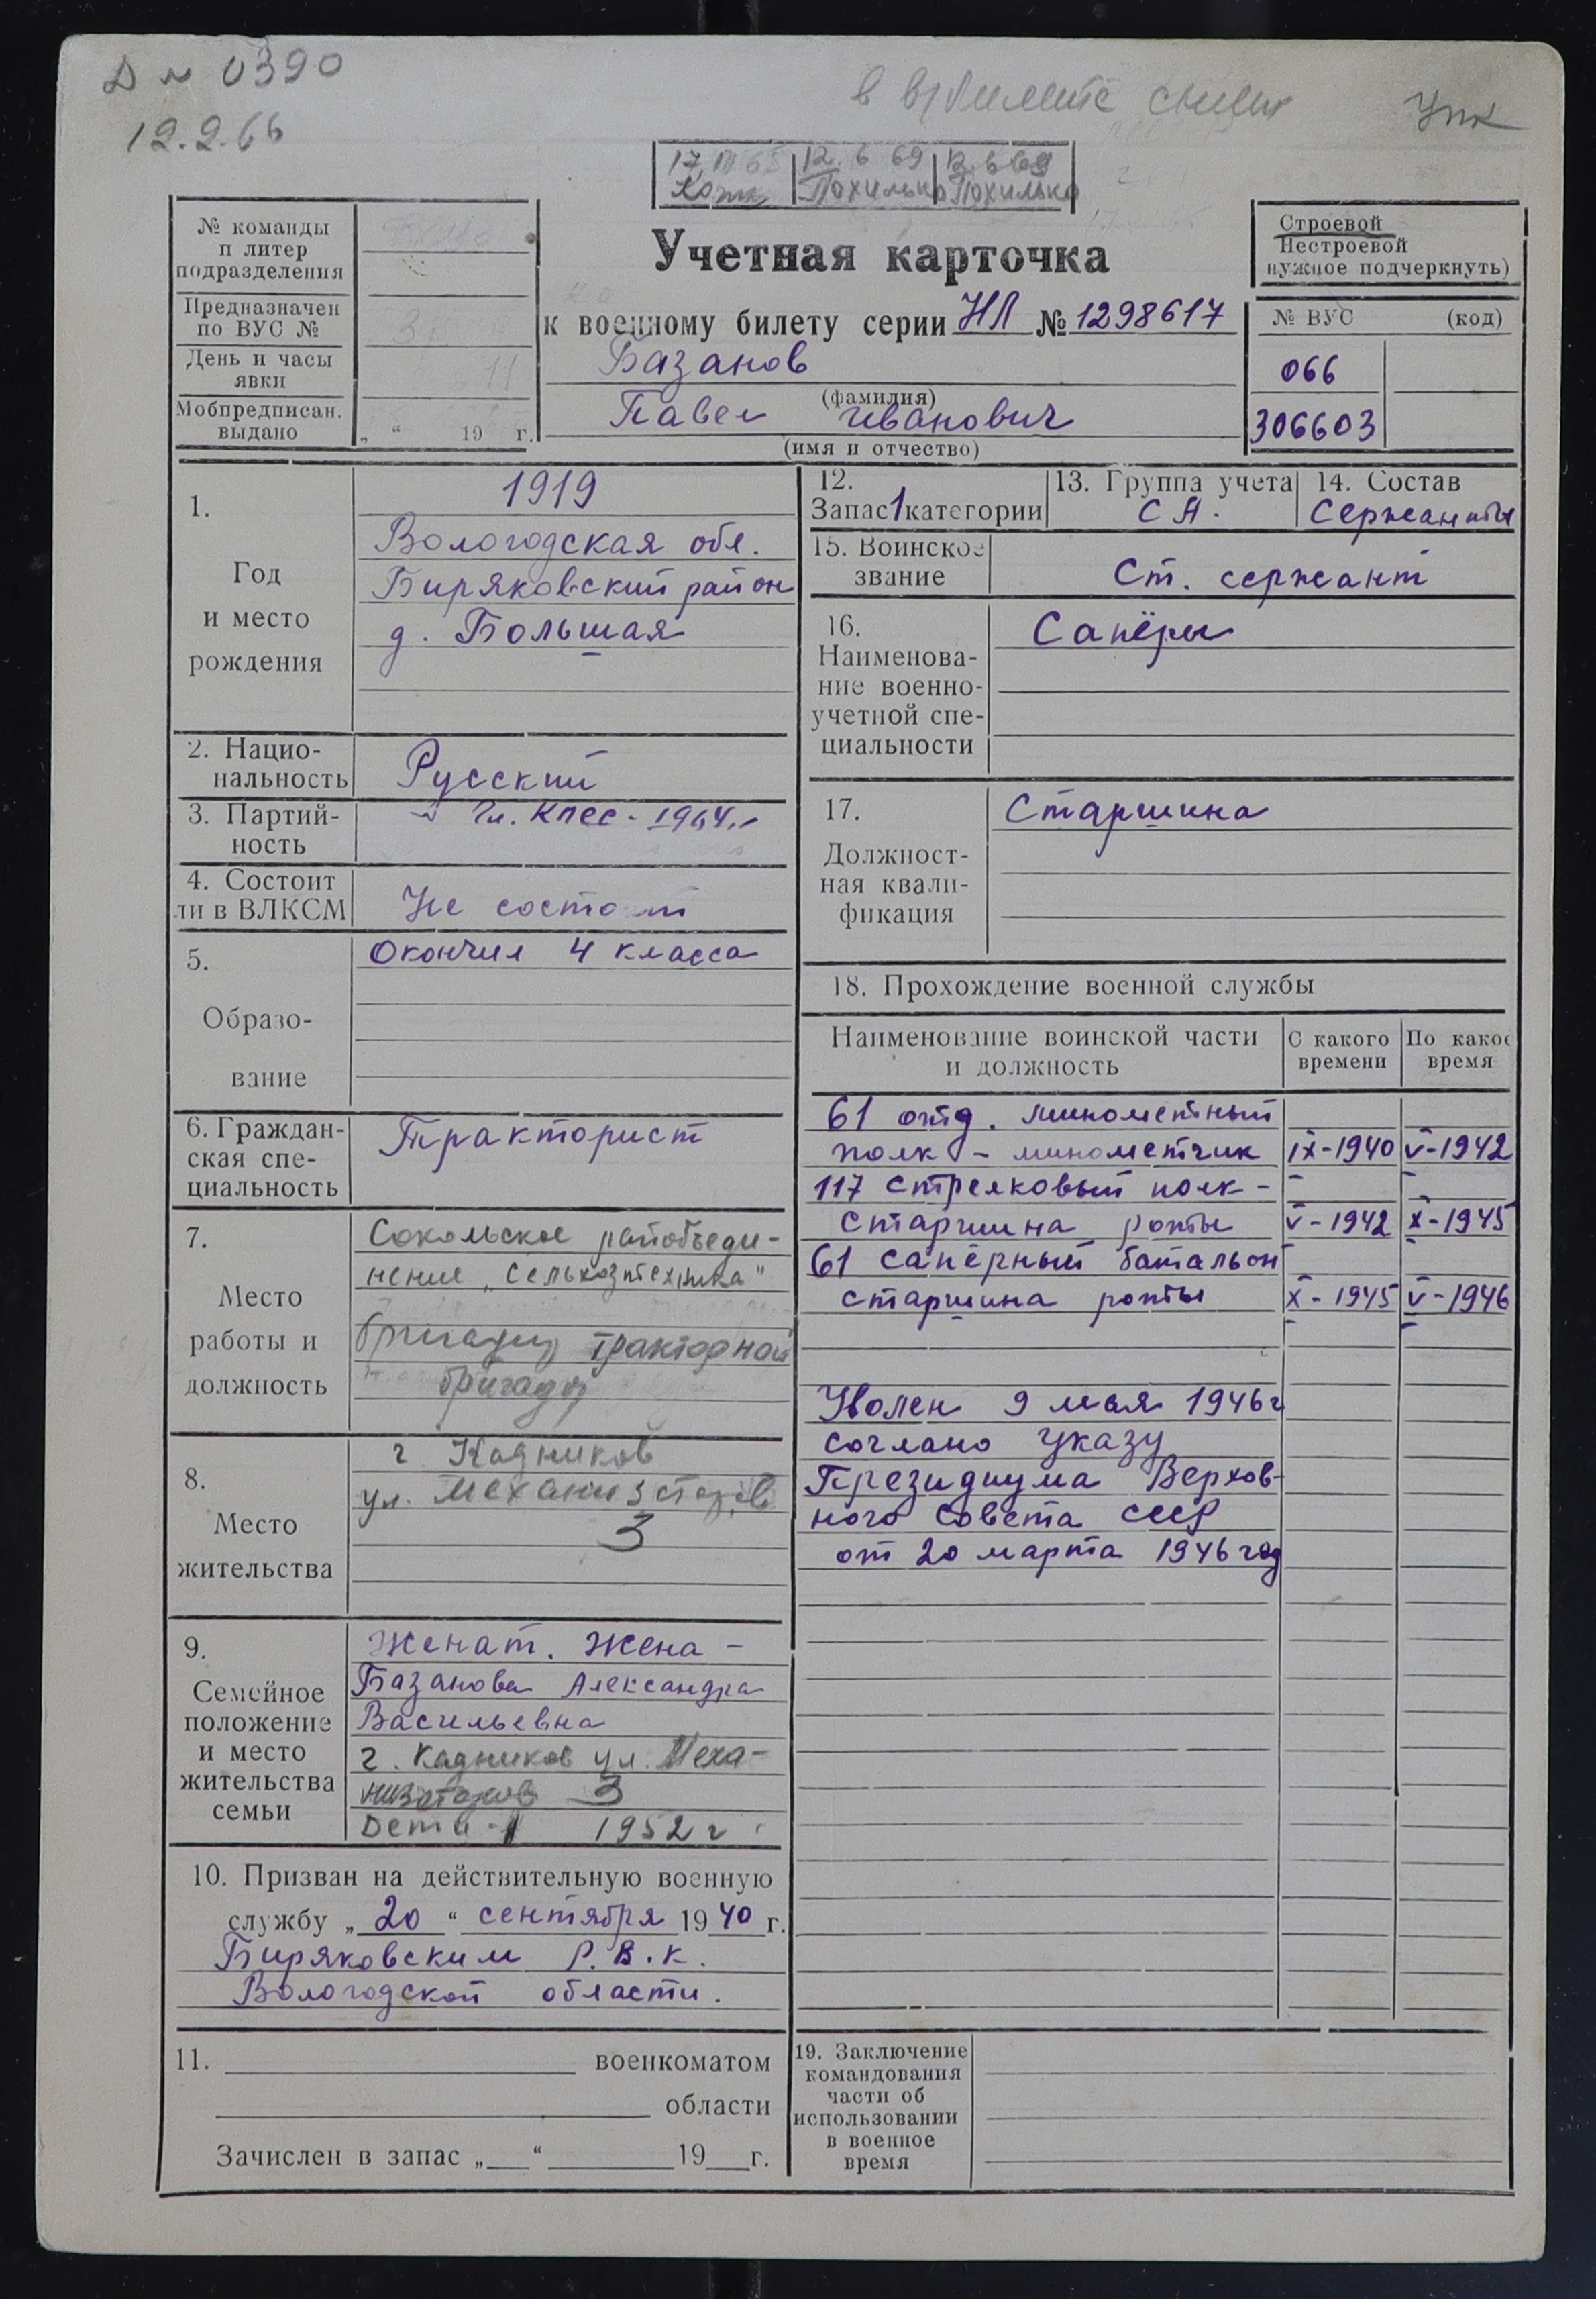 № 0390
12.2.66
в
УПК
17 65 12. 6 69 12. 6 69
Похилько Похилько
№ команды
п литер
подразделения
Предназначен
по ВУС №
День и часы
явки
11
Мобпредписан.
выдано
„ “ 19 г.
Учетная карточка
к военному билету серии НЛ № 1298617
Базанов
(фамилия)
Павел Иванович
(имя и отчество)
Строевой
Нестроевой
нужное подчеркнуть)
№ ВУС (код)
066
306603
1.
Год
и место
рождения
1919
Вологодская обл.
Биряковский район
д. Большая
2. Нацио-
нальность
Русский
3. Партий-
ность
Чл. КПСС - 1964
4. Состоит
ли в ВЛКСМ
Не состоит
5.
Образо-
вание
Окончил 4 класса
6. Граждан-
ская спе-
циальность
Тракторист
7.
Место
работы и
должность
Сокольское райобъеди-
нение „Сельхозтехника"
бригадир тракторной
бригады
8.
Место
жительства
г Кадников
ул. Механизаторов
3
9.
Семейное
положение
и место
жительства
семьи
Женат. Жена -
Базанова Александра
Васильевна
г. Кадников ул. Меха-
низаторов 3
Дети - 1 1952 г
10. Призван на действительную военную
службу „ 20 “ сентября 1940 г.
Биряковским Р.В.К.
Вологодской области.
11. военкоматом
области
Зачислен в запас „ “ 19 г.
12.
Запас 1 категории
13. Группа учета
СА.
14. Состав
Сержанты
15. Воинское
звание
Ст. сержант
16.
Наименова-
ние военно-
учетной спе-
циальности
Сапёры
17.
Должност-
ная квали-
фикация
Старшина
18. Прохождение военной службы
Наименование воинской части
и должность
С какого
времени
По какое
время
61 отд. минометный
полк - минометчик IX-1940 V-1942
117 стрелковый полк -
старшина роты V-1942 X-1945
61 сапёрный батальон
старшина роты X-1945 V-1946
Уволен 9 мая 1946 г
соглано Указу
Президиума Верхов-
ного Совета СССР
от 20 марта 1946 год
19. Заключение
командования
части об
использовании
в военное
время